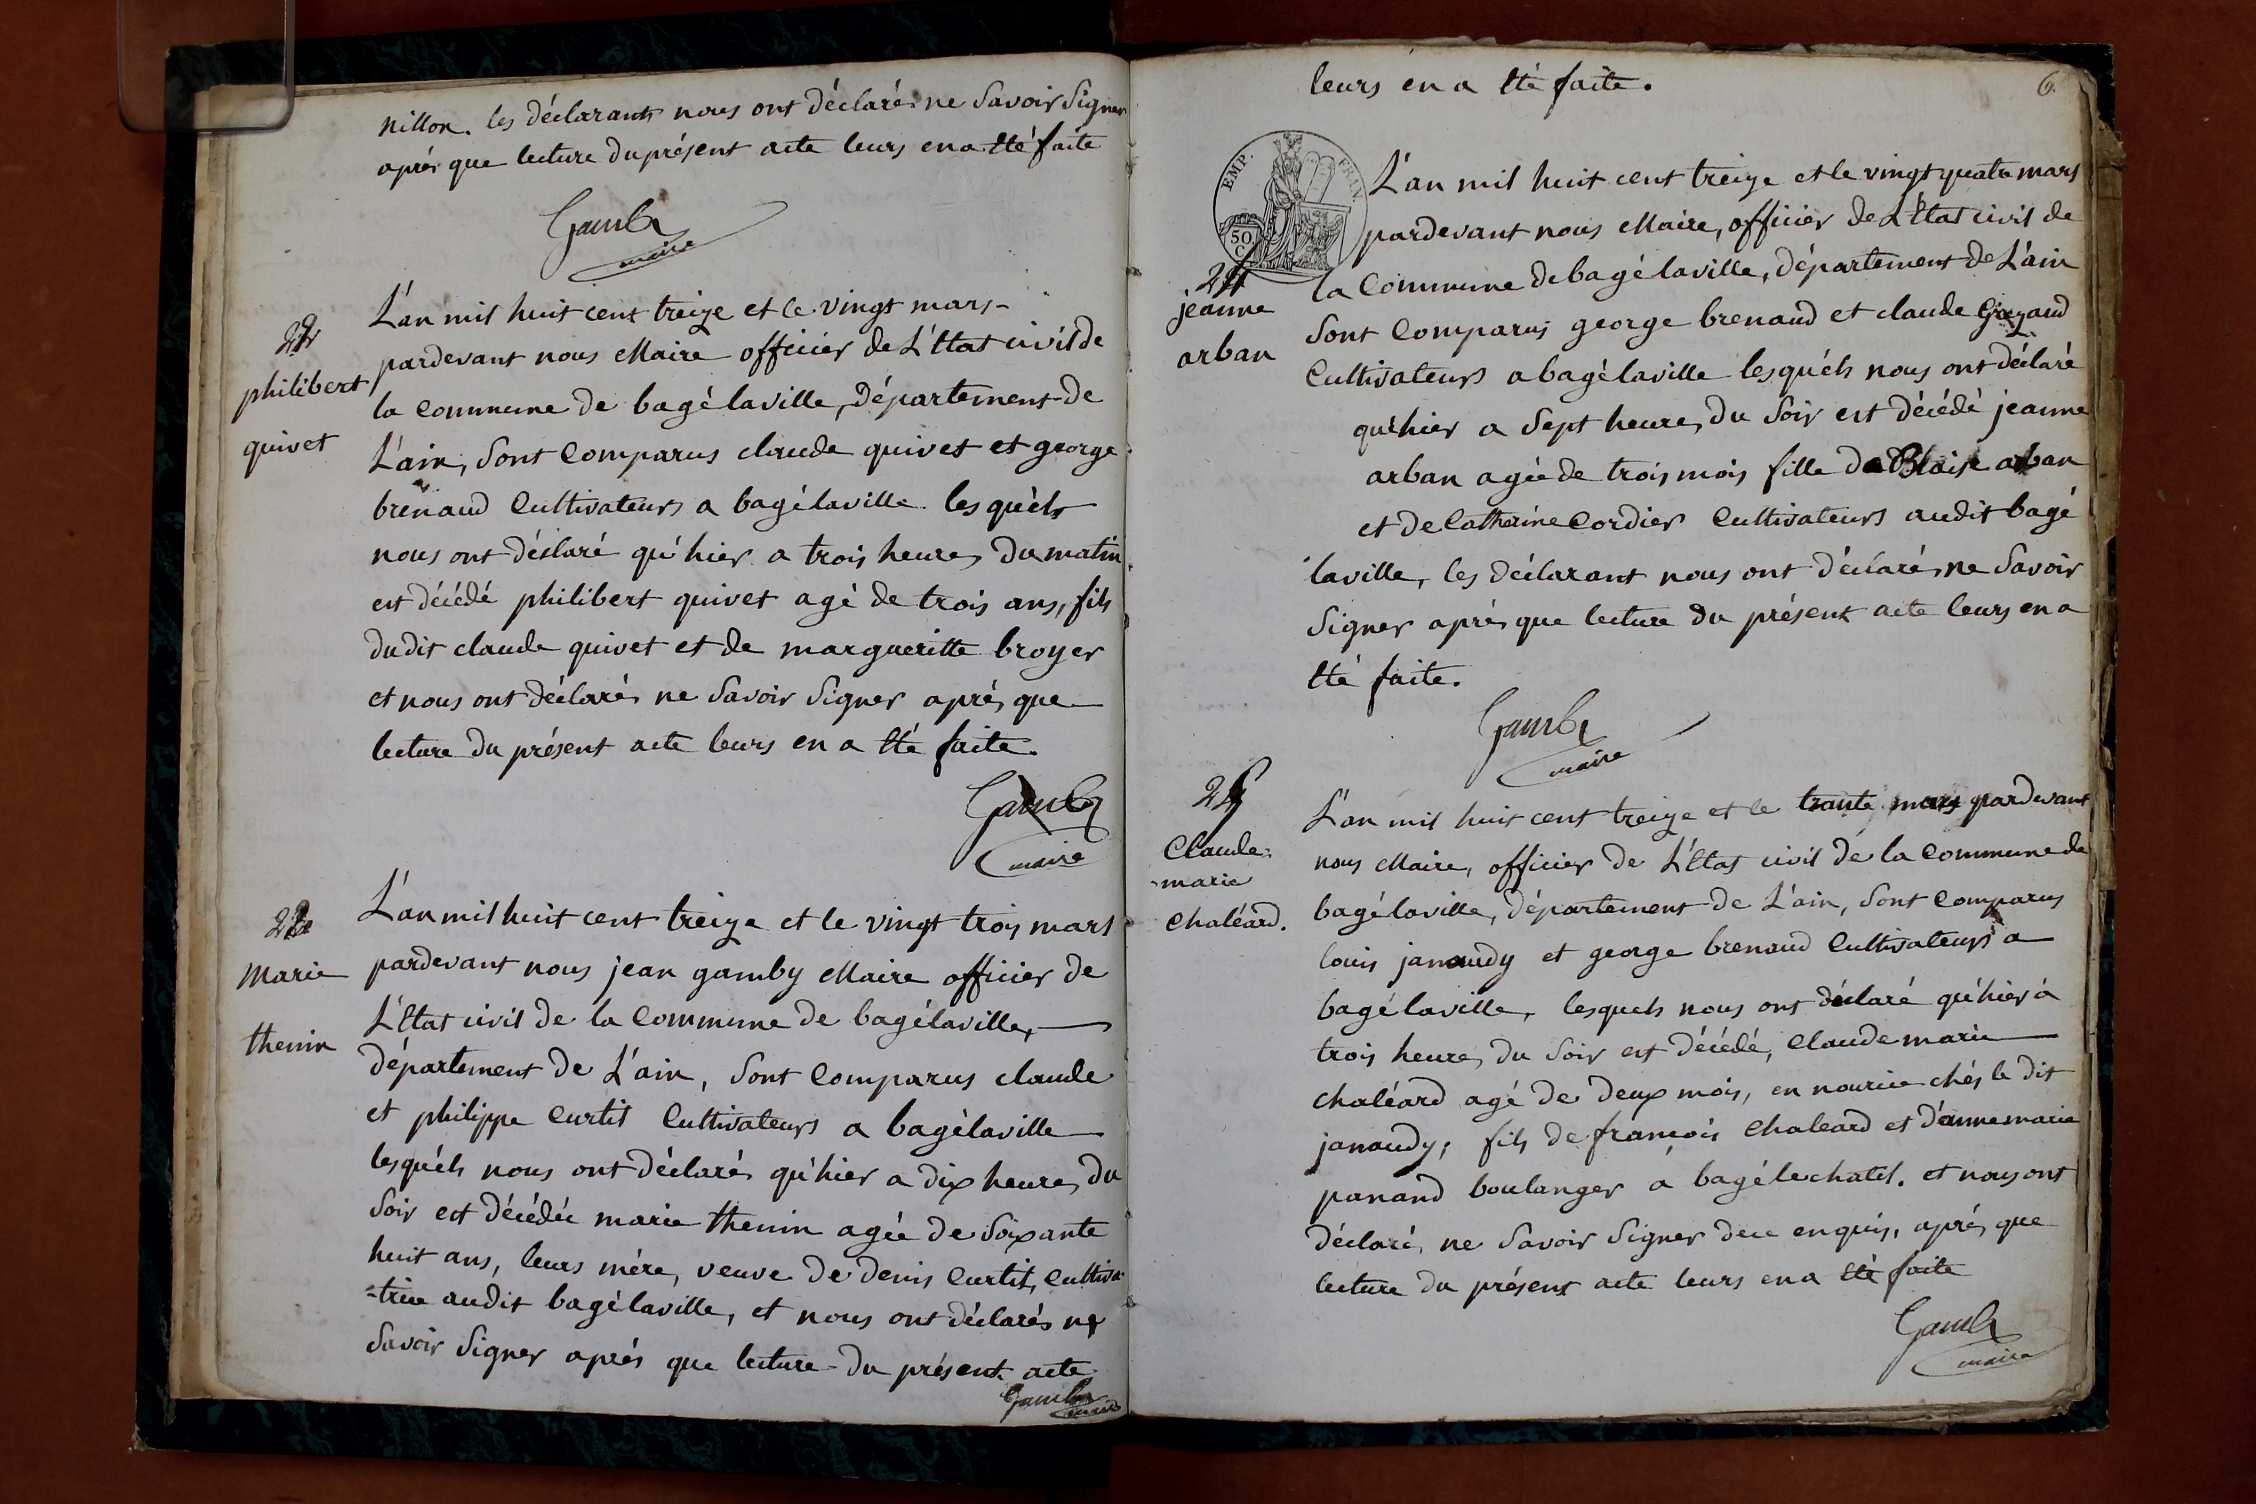 nillon. les déclarants nous ont déclarés ne Savoir Signer
aprés que lecture du présent acte leurs en a été faite
Gamby
maire
philibert
quivet
L'an mil huit cent treize et le vingt mars
pardevant nous Maire officier de L'Etat civil de
la Commune de bagélaville, Département de
L'ain, Sont Comparus claude quivet et george
brenaud Cultivateurs a bagélaville lesquéls
nous ont déclaré qu'hier a trois heures du matin
est décédé philibert quivet agé de trois ans, fils
dudit claude quivet et de margueritte broyer
et nous ont déclarés ne Savoir Signer aprés que
lecture du présent acte leurs en a été faite.
Gamby
maire
marie
thenin
L'an mil huit cent treize et le vingt trois mars
pardevant nous jean gamby Maire officier de
L'Etat civil de la Commune de bagélaville,
département de L'ain, Sont Comparus claude
et philippe Curtit Cultivateurs a bagélaville
lesquéls nous ont déclarés qu'hier a dix heures du
Soir est décédée marie thenin agée de Soixante
huit ans, leurs mére, veuve de denis Curtit, Cultiva
=trice audit bagélaville, et nous ont déclarés ne
Savoir Signer aprés que lecture du présent acte
Gamby
maire
6.
leurs en a été faite.
EMP. FRAN.
50
C
24
jeanne
arban
L'an mil huit cent treize et le vingt quatre mars
pardevant nous Maire, officier de L'Etat civil de
la Commune de bagélaville, département de L'ain
Sont Comparus george brenaud et claude Guyaud
Cultivateurs a bagélaville lesquéls nous ont déclaré
qu'hier a Sept heures du Soir est décédé jeanne
arban agée de trois mois fille de Blaise arban
et de Catherine Cordier Cultivateurs audit bagé
laville, les déclarant nous ont déclarés ne Savoir
Signer aprés que lecture du présent acte leurs en a
été faite.
Gamby
maire
25
Claude=
marie
chaléard.
L'an mil huit cent treize et le trante mars pardevant
nous Maire, officier de L'Etat civil de la Commune de
bagélaville, département de L'ain, Sont Comparus
louis janaudy et george brenaud Cultivateurs a
bagélaville, lesquels nous ont déclaré qu'hier à
trois heures du Soir est décédé, Claude marie
chaléard agé de deux mois, en nourice chés le dit
janaudy; fils de francois chaleard et d'anne marie
panand boulanger à bagélechatel. et nous ont
déclaré, ne Savoir Signer dece enquis, aprés que
lecture du présent acte leurs en a été faite
Gamby
maire